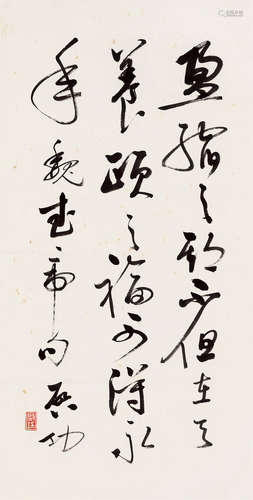 盈縮之期不但在天
養頤之福可得永
年魏武帝句启功